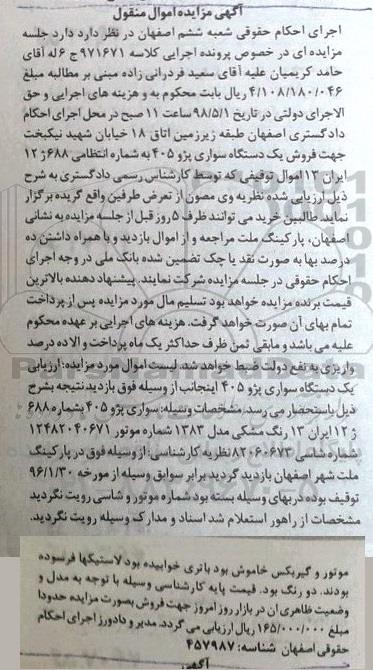 آگهی مزایده اموال منقول
اجرای احکام حقوقی شعبه ششم اصفهان در نظر دارد دارد جلسه
مزایده ای در خصوص پرونده اجرایی کلاسه ۹۷۱۶۷۱ ج ۶ له آقای
حامد کریمیان علیه آقای سعید فردرانی زاده مبنی بر مطالبه مبلغ
۴/۱۰۸/۱۸۰/۰۴۶ ریال بابت محکوم به و هزینه های اجرایی و حق
الاجرای دولتی در تاریخ ۹۸/۵/۱ ساعت ۱۱ صبح در محل اجرای احکام
دادگستری اصفهان طبقه زیرزمین اتاق ۱۸ خیابان شهید نیکبخت
جهت فروش یک دستگاه سواری پژو ۴۰۵ به شماره انتظامی ۶۸۸ ژ ۱۲
ایران ۱۳ اموال توقیفی که توسط کارشناس رسمی دادگستری به شرح
ذیل ارزیابی شده نظریه وی مصون از تعرض طرفین واقع گردیده برگزار
نماید. طالبین خرید می توانند ظرف ۵ روز قبل از جلسه مزایده به نشانی
اصفهان، پارکینگ ملت مراجعه و از اموال بازدید و با همراه داشتن ده
درصد بها به صورت نقد یا چک تضمین شده بانک ملی در وجه اجرای
احکام حقوقی در جلسه مزایده شرکت نمایند. پیشنهاد دهنده بالاترین
قیمت برنده مزایده خواهد بود تسلیم مال مورد مزایده پس از پرداخت
تمام بهای آن صورت خواهد گرفت. هزینه های اجرایی بر عهده محکوم
علیه می باشد و مابقی ثمن ظرف حداکثر یک ماه پرداخت و الا ده درصد
واریزی به نفع دولت ضبط خواهد شد. لیست اموال مورد مزایده: ارزیابی
یک دستگاه سواری پژو ۴۰۵ اینجانب از وسیله فوق بازدید نتیجه بشرح
ذیل باستحضار می رسد. مشخصات وسیله: سواری پژو ۴۰۵ بشماره ۶۸۸
ژ ۱۲ ایران ۱۳ رنگ مشکی مدل ۱۳۸۳ شماره موتور ۱۲۴۸۲۰۴۰۶۷۱
شماره شاسی ۸۲۰۶۰۶۷۳ نظریه کارشناسی: از وسیله فوق در پارکینگ
ملت شهر اصفهان بازدید گردید برابر سوابق وسیله از مورخه ۹۶/۱/۳۰
توقیف بوده دربهای وسیله بسته بود شماره موتور و شاسی رویت نگردید
مشخصات از راهور استعلام شد اسناد و مدارک وسیله رویت نگردید.
موتور و گیربکس خاموش بود باتری خوابیده بود لاستیکها فرسوده
بودند. دو رنگ بود. قیمت پایه کارشناسی وسیله با توجه به مدل و
وضعیت ظاهری ان در بازار روز امروز جهت فروش بصورت مزایده حدودا
مبلغ ۱۶۵/۰۰۰/۰۰۰ ریال ارزیابی می گردد. مدیر و دادورز اجرای احکام
حقوقی اصفهان شناسه: ۴۵۷۹۸۷
آگهی